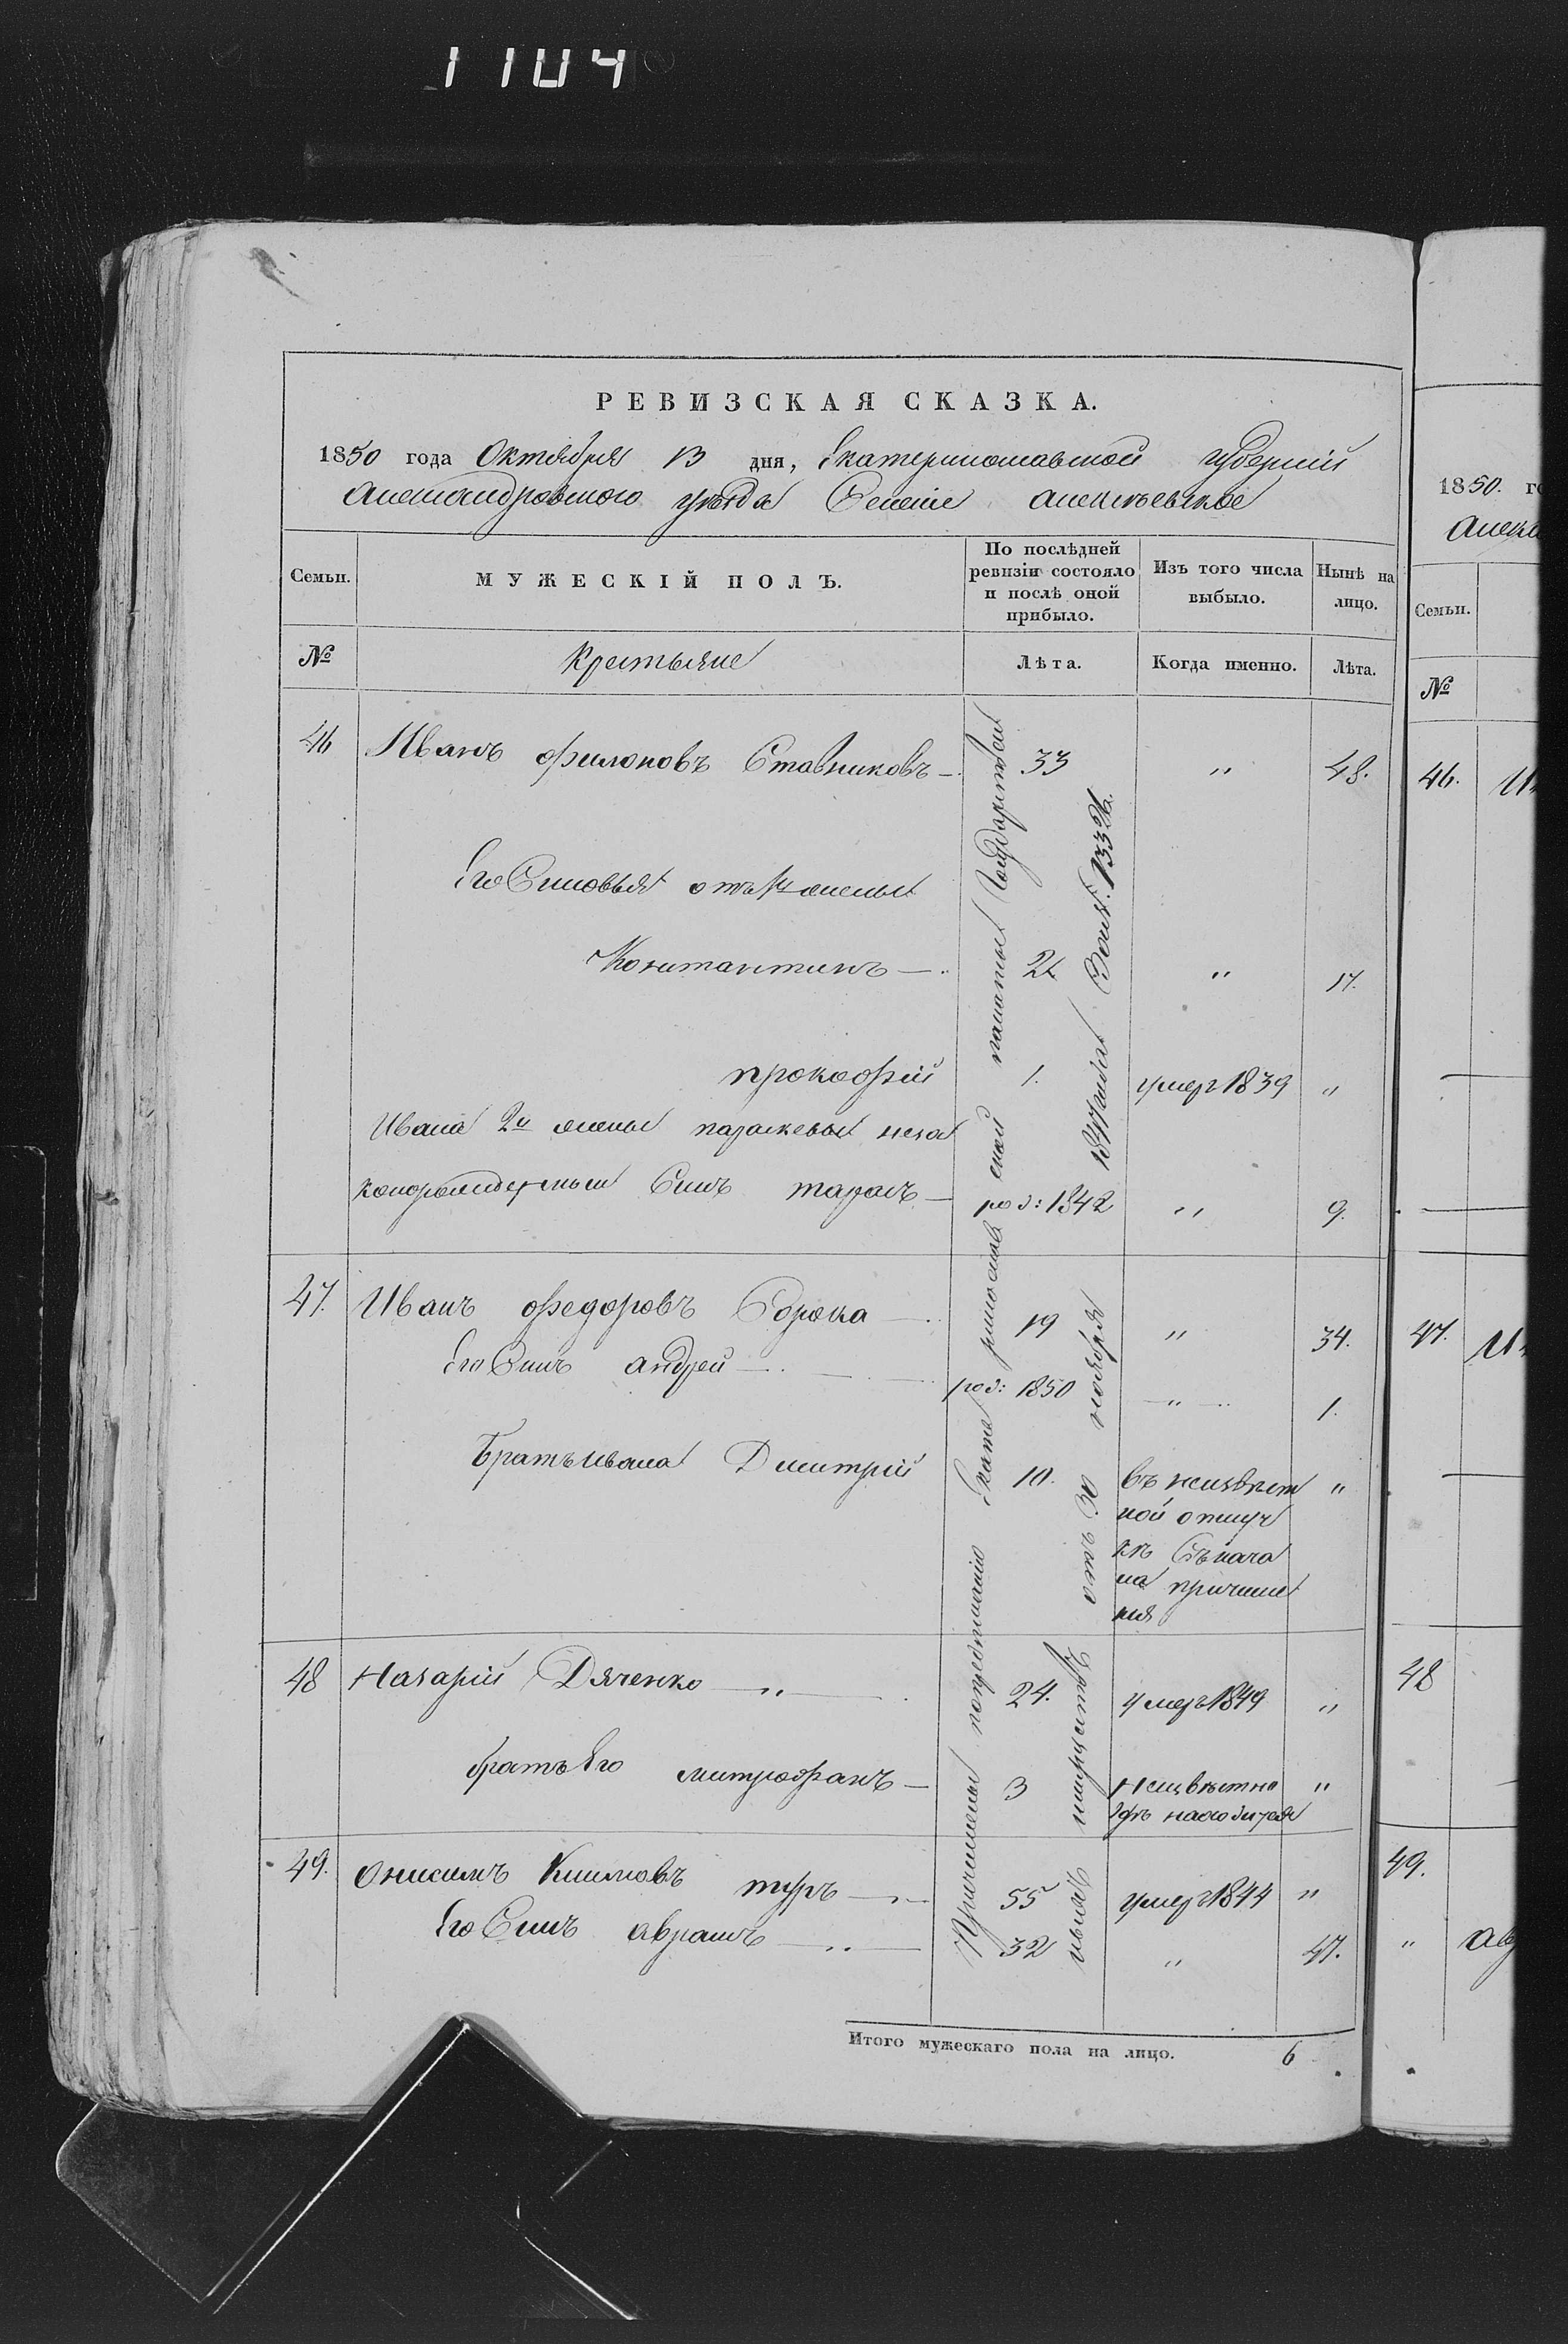 1104
РЕВИЗСКАЯ СКАЗКА.
1850 года Октября 13 дня, Екатеринославской губерніи
Александровскаго уѣзда Селеніе Алексѣевское
Семьи.
МУЖЕСКІЙ ПОЛЪ.
По послѣдней
ревизіи состояло
и послѣ оной
прибыло.
Изъ того числа
выбыло.
Нынѣ на
лицо.
№
Крестьяне
Лѣта.
Когда именно.
Лѣта.
46 Иванъ Филоновъ Ставниковъ 33 " 48.
Его Сыновья отъ 1й жены
Константинъ 2 " 17.
Прокофій 1. умеръ 1839 "
Ивана 2й жены параскевы неза
конорожденный Сынъ тарасъ род: 1842 " 9.
47. Иванъ Федоровъ Сорока 19 " 34.
Его Сынъ андрей род: 1850 " 1.
Братъ ивана Дмитрій 10. въ неизвѣст "
ной отлуч
кѣ съ нача
ла причисле
нія
48 Назарій Дяченко " 24. умеръ 1849 "
братъ Его митрофанъ 3 Неизвѣстно "
гдѣ находится
49. Онисимъ Климовъ туръ 55 умеръ 1844 "
Его Сынъ аврамъ 32 " 47.
Причислены по предписанію Екатеринославской палаты Государствен
ныхъ имуществъ отъ 30 ноября 1847 года
Итого мужескаго пола на лицо. 6
1850. го
Алекс
Семьи.
№
46. И
47. И
48
49.
" ав